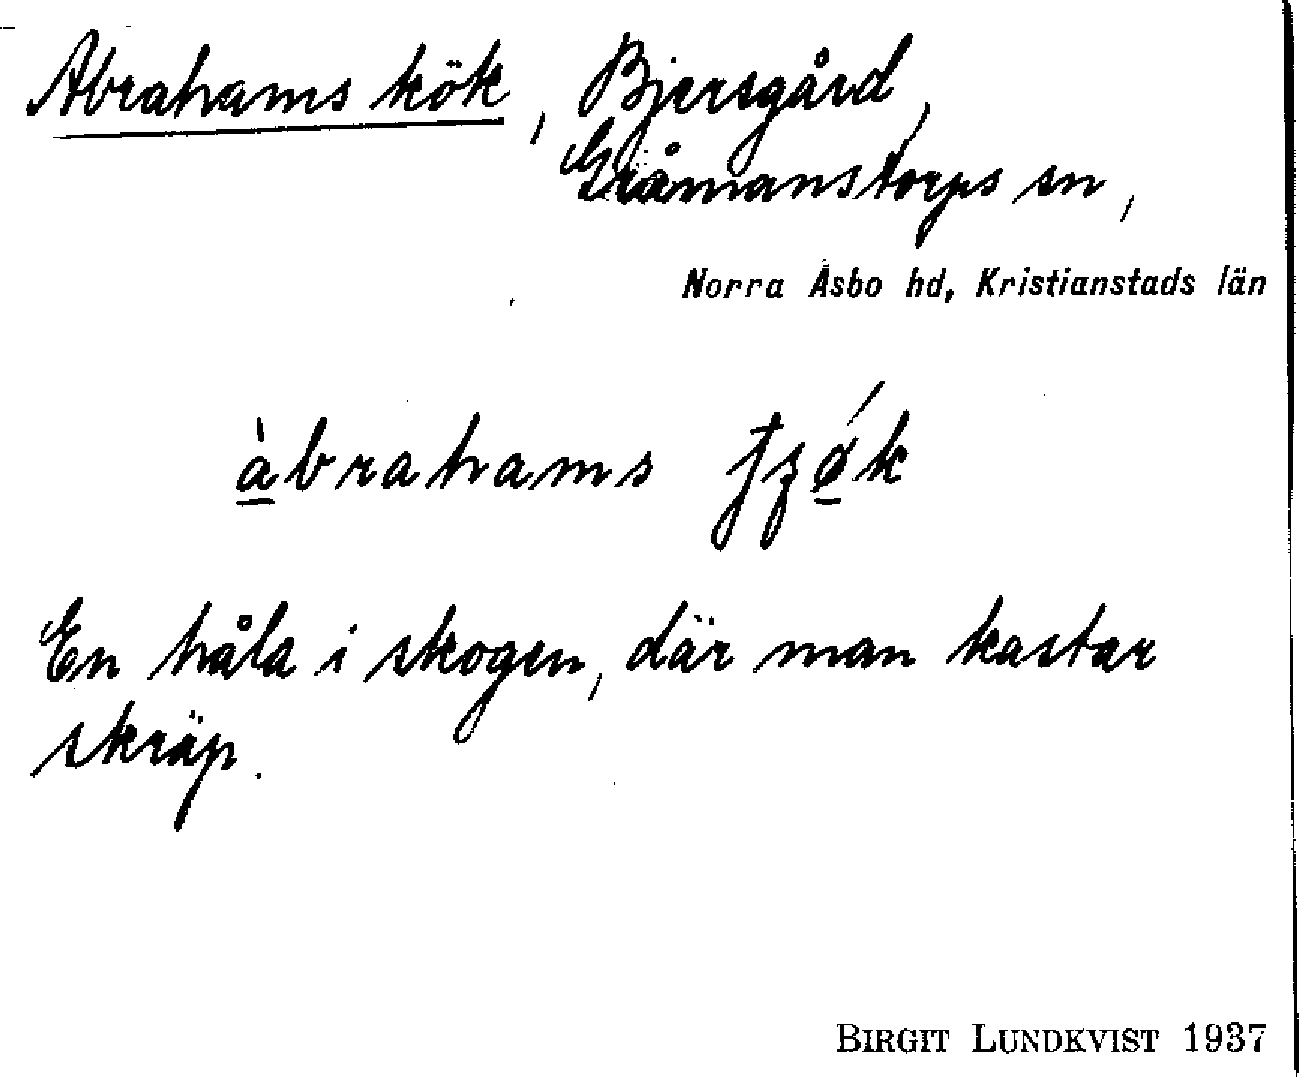 Abrahams kök, Bjersgård,
Gråmanstorps sn,
Norra Åsbo hd, Kristianstads län
àbrahams
En håla i skogen, där man kastar
skräp.
BIRGIT LUNDKVIST 1937